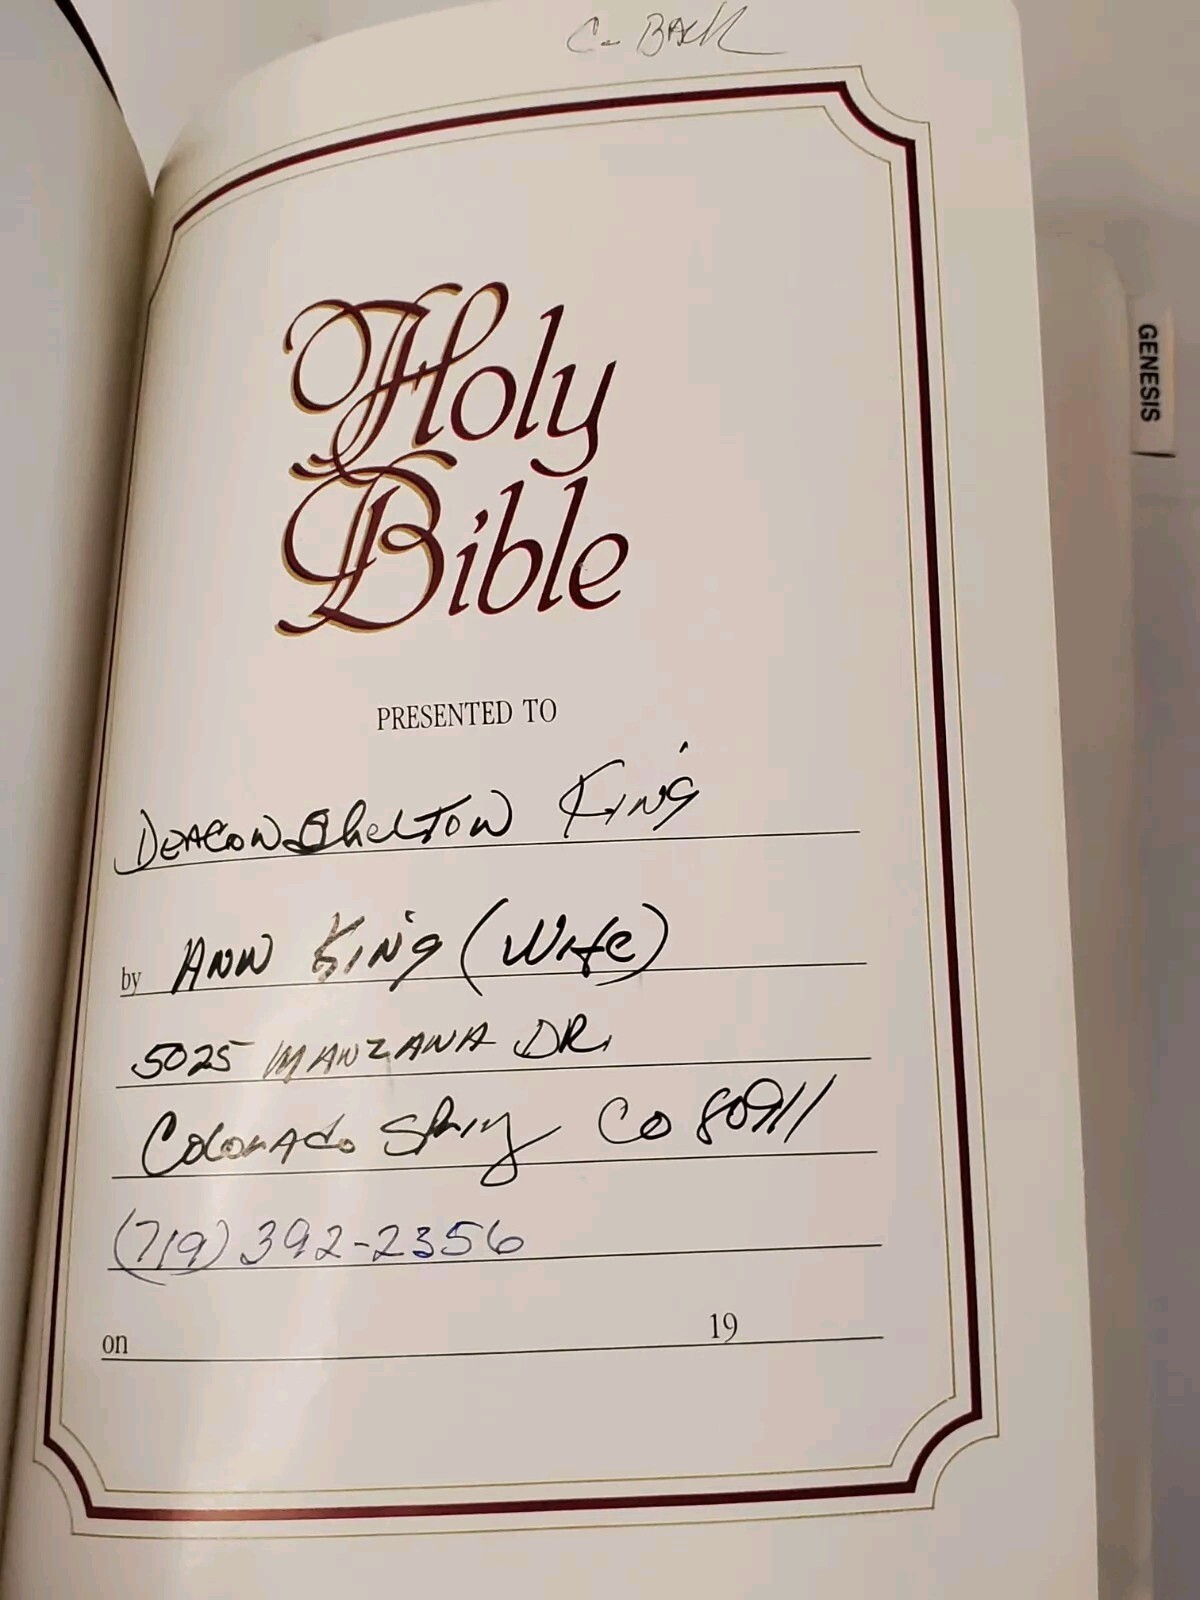 C- BACK
GENESIS
Holy
Bible
PRESENTED TO
DEACON Shelton KING
by ANN KING (Wife)
5025 MANZANA DR.
COLORADO Spring CO 80911
(719) 392-2356
on 19